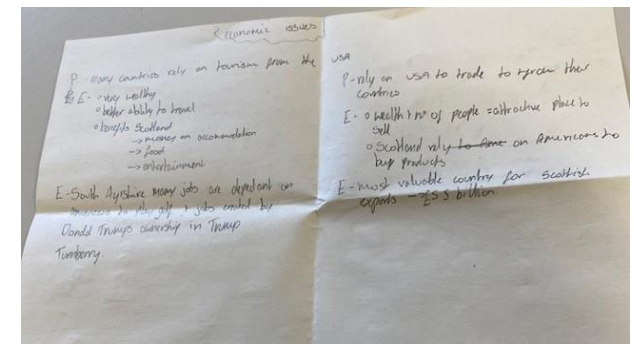 economic issues
P - Many countries rely on tourism from the USA
E - very wealthy
better ability to travel
benefits Scotland
→ money on accommodation
→ food
→ entertainment
E - South Ayrshire many jobs are depedant on
to play golf + jobs created by
Donald Trumps ownership in Trump
Turnberry.
P - rely on USA to trade to grow their
countries
E - wealth + no of people = attractive place to
sell
Scotland rely on Americans to
buy products
E - most valuable country for Scottish
exports → £5.5 billion.